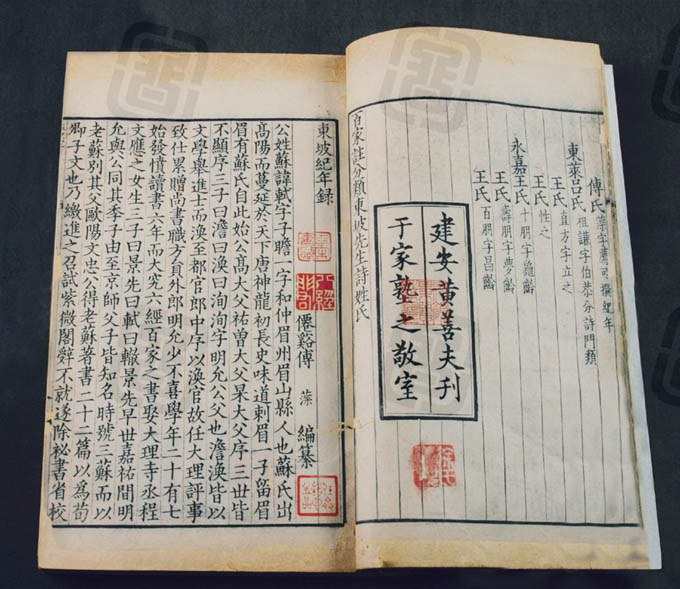 傅氏 藻字薦可撰紀年
東萊呂氏 祖謙字伯恭分詩門類
王氏 直方字立之
王氏 性之
永嘉王氏 十朋字龜齡
王氏 壽朋字夢齡
王氏 百朋字昌齡
建安黃善夫刊
于家塾之敬室
百家註分類東坡先生詩姓氏
東坡紀年録
僊谿傅 藻 編纂
公姓蘇諱軾字子瞻一字和仲眉州眉山縣人也蘇氏出
高陽而蔓延於天下唐神龍初長史味道刺眉一子留眉
眉有蘇氏自此始公高大父祐曾大父杲大父序三世皆
不顯序三子曰澹曰渙曰洵洵字明允公父也澹渙皆以
文學舉進士而渙至都官郎中序以渙官故任大理評事
致仕累贈尚書職方員外郎明允少不喜學年二十有七
始發憤讀書六年而大究六經百家之書娶大理寺丞程
文應之女生三子曰景先曰軾曰轍景先早世嘉祐間明
允與公同其季子由至京師父子皆知名時號三蘇而以
老蘇别其父歐陽文忠公得老蘇著書二十二篇以爲荀
卿子文也乃繳進之召試紫微閣辭不就遂除祕書省校